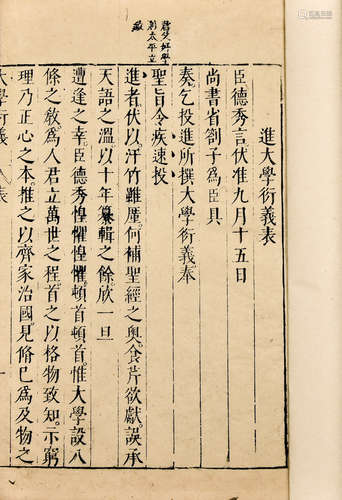 進大學衍義表
臣德秀言伏准九月十五日
尚書省劄子為臣具
奏乞投進所撰大學衍義奉
聖旨令疾速投
進者伏以汗竹雖厪何補聖經之奧食芹欲獻誤承
天語之溫以十年纂輯之餘欣一旦
遭逢之幸臣德秀惶懼惶懼頓首頓首惟大學設八
條之教為人君立萬世之程首之以格物致知示窮
理乃正心之本推之以齊家治國見脩已為及物之
大學衍義 表